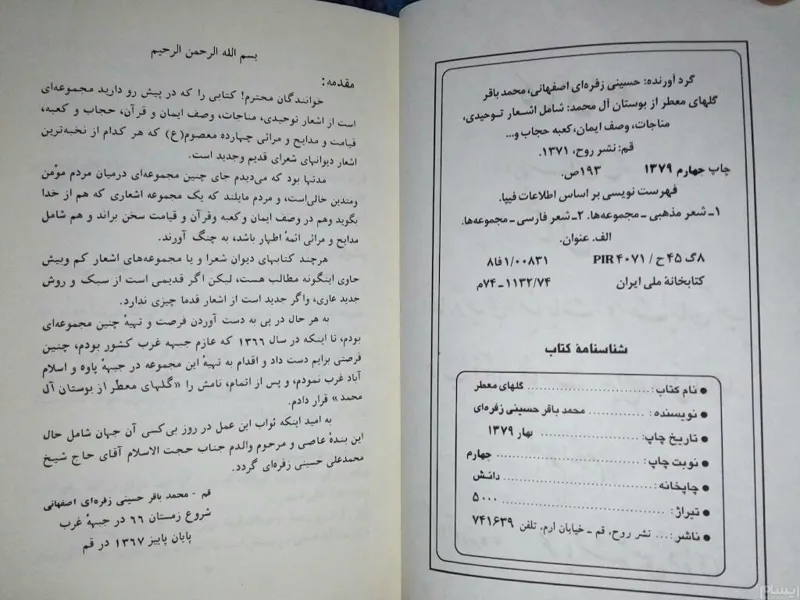 گرد آورنده: حسینی زفره‌ای اصفهانی، محمد باقر
گلهای معطر از بوستان آل محمد: شامل اشعار توحیدی،
مناجات، وصف ایمان، کعبه حجاب و...
قم: نشر روح، ۱۳۷۱.
چاپ چهارم ۱۳۷۹ ۱۹۳ص.
فهرست نویسی بر اساس اطلاعات فیپا.
۱ـ شعر مذهبی ـ مجموعه‌ها. ۲ـ شعر فارسی ـ مجموعه‌ها.
الف. عنوان.
۸گ ۴۵ ح / ۴۰۷۱ PIR ۱/۰۰۸۳۱فا۸
کتابخانهٔ ملی ایران ۱۱۳۲/۷۴ـ۷۴م
شناسنامهٔ کتاب
● نام کتاب: ............ گلهای معطر
● نویسنده: ............ محمد باقر حسینی زفره‌ای
● تاریخ چاپ: ............ بهار ۱۳۷۹
● نوبت چاپ: ............ چهارم
● چاپخانه: ............ دانش
● تیراژ: ............ ۵۰۰۰
● ناشر: ... نشر روح، قم ـ خیابان ارم، تلفن ۷۴۱۶۳۹
بسم الله الرحمن الرحیم
مقدمه:
خوانندگان محترم! کتابی را که در پیش رو دارید مجموعه‌ای
است از اشعار توحیدی، مناجات، وصف ایمان و قرآن، حجاب و کعبه،
قیامت و مدایح و مراثی چهارده معصوم(ع) که هر کدام از نخبه‌ترین
اشعار دیوانهای شعرای قدیم وجدید است.
مدتها بود که می‌دیدم جای چنین مجموعه‌ای درمیان مردم مؤمن
ومتدین خالی‌است، و مردم مایلند که یک مجموعه اشعاری که هم از خدا
بگوید وهم در وصف ایمان وکعبه وقرآن و قیامت سخن براند و هم شامل
مدایح و مراثی ائمهٔ اطهار باشد، به چنگ آورند.
هرچند کتابهای دیوان شعرا و یا مجموعه‌های اشعار کم وبیش
حاوی اینگونه مطالب هست، لیکن اگر قدیمی است از سبک و روش
جدید عاری، واگر جدید است از اشعار قدما چیزی ندارد.
به هر حال در پی به دست آوردن فرصت و تهیهٔ چنین مجموعه‌ای
بودم، تا اینکه در سال ۱۳۶۶ که عازم جبهه غرب کشور بودم، چنین
فرصتی برایم دست داد و اقدام به تهیهٔ این مجموعه در جبههٔ پاوه و اسلام
آباد غرب نمودم، و پس از اتمام، نامش را «گلهای معطر از بوستان آل
محمد» قرار دادم.
به امید اینکه ثواب این عمل در روز بی‌کسی آن جهان شامل حال
این بندهٔ عاصی و مرحوم والدم جناب حجت الاسلام آقای حاج شیخ
محمدعلی حسینی زفره‌ای گردد.
قم - محمد باقر حسینی زفره‌ای اصفهانی
شروع زمستان ۶۶ در جبههٔ غرب
پایان پاییز ۱۳۶۷ در قم
ایسام